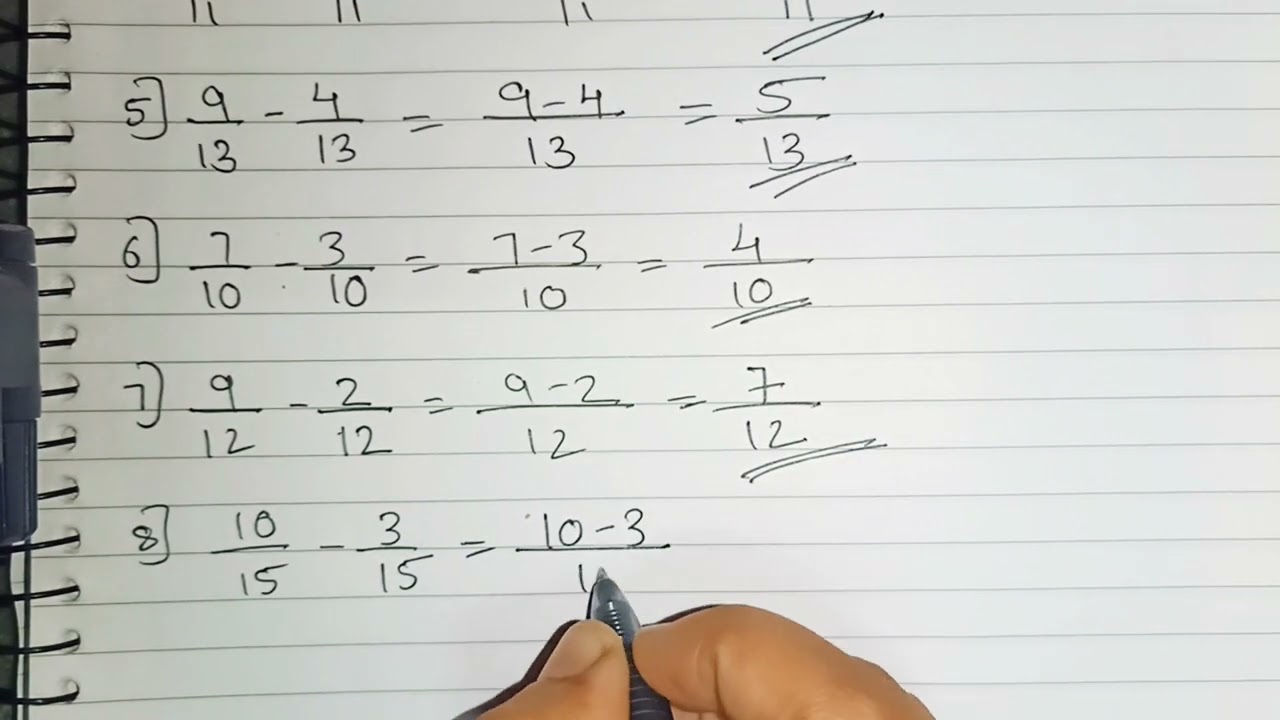 11 11 11 11
5] 9/13 - 4/13 = 9-4/13 = 5/13
6] 7/10 - 3/10 = 7-3/10 = 4/10
7] 9/12 - 2/12 = 9-2/12 = 7/12
8] 10/15 - 3/15 = 10-3/1